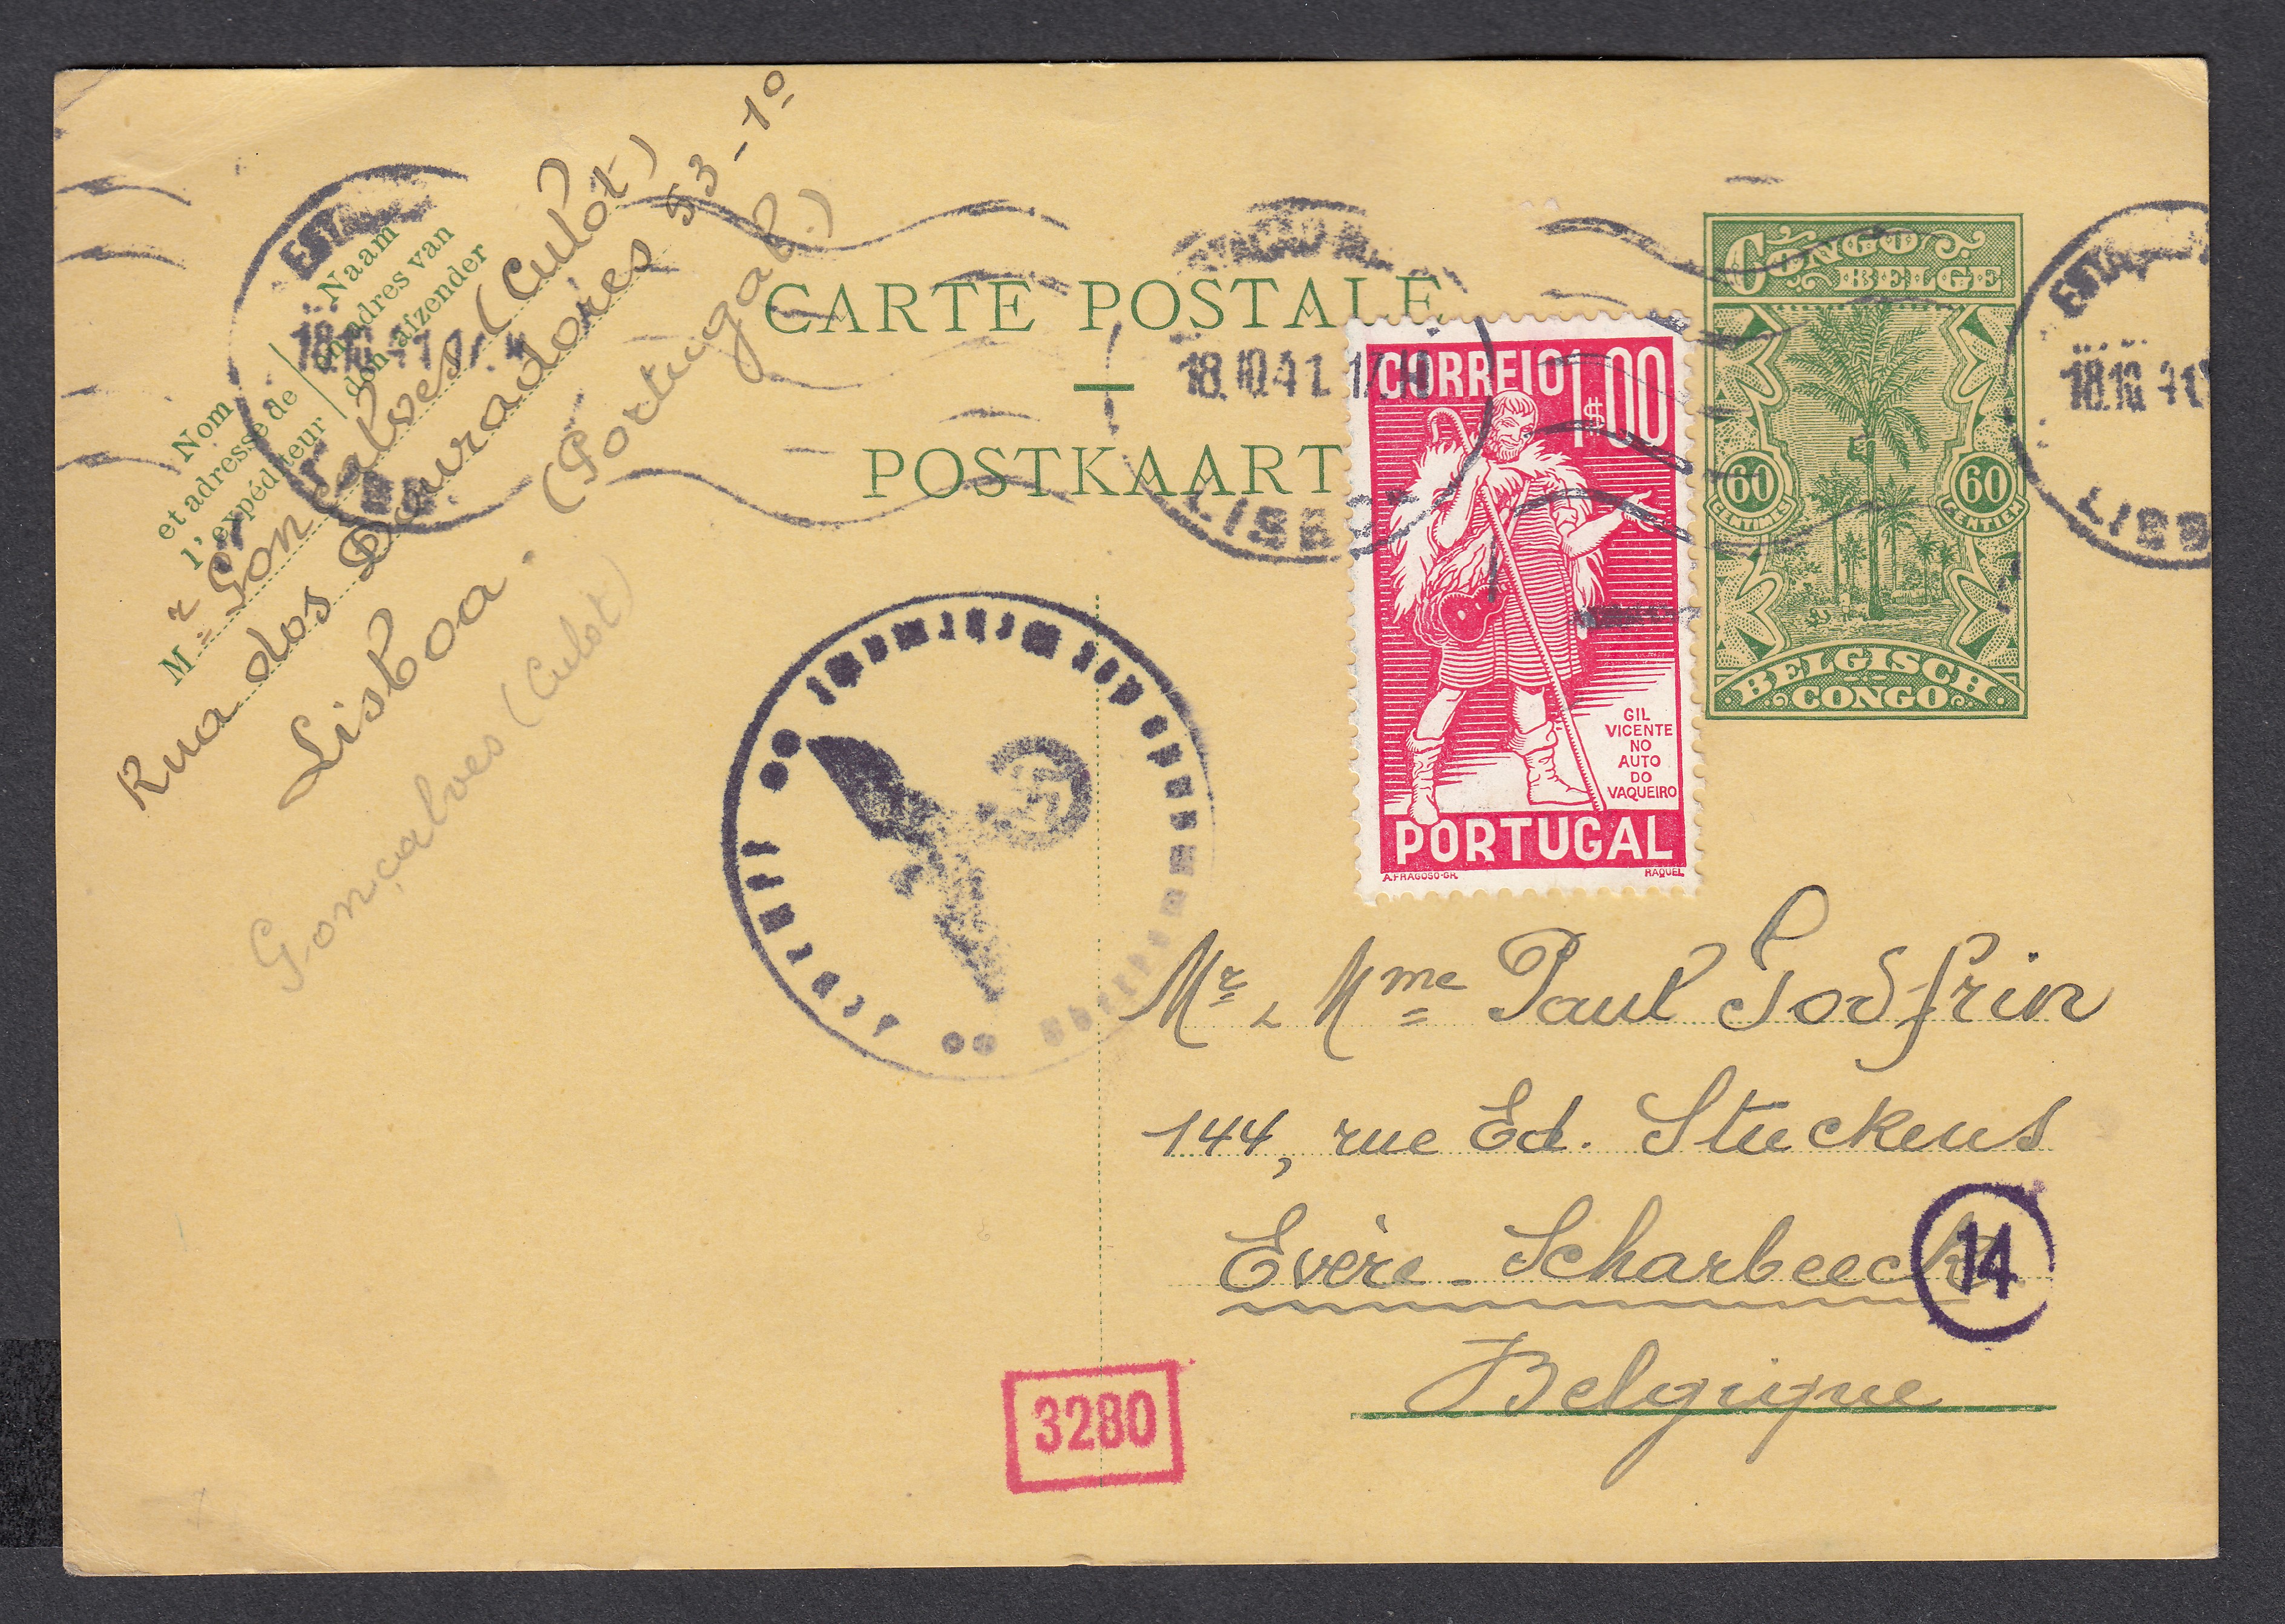 Nom
et adresse de
l'expéditeur
Naam
en adres van
den afzender
Mr Gonçalves (Culot)
Rua dos Douradores 53-1º
Lisboa.
(Portugal.)
Gonçalves (Culot)
CARTE POSTALE
POSTKAART
18.10.41
18.10.41
18.10.41
CORREIO 1$00
GIL
VICENTE
NO
AUTO
DO
VAQUEIRO
PORTUGAL
A.FRAGOSO-GR. RAQUEL
CONGO
BELGE
60
CENTIMES
60
CENTIEM
BELGISCH
CONGO
Oberkommando der Wehrmacht
Mr & Mme Paul Godfrin
144, rue Ed. Stuckens
Evère-Scharbeeck
14
Belgique
3280